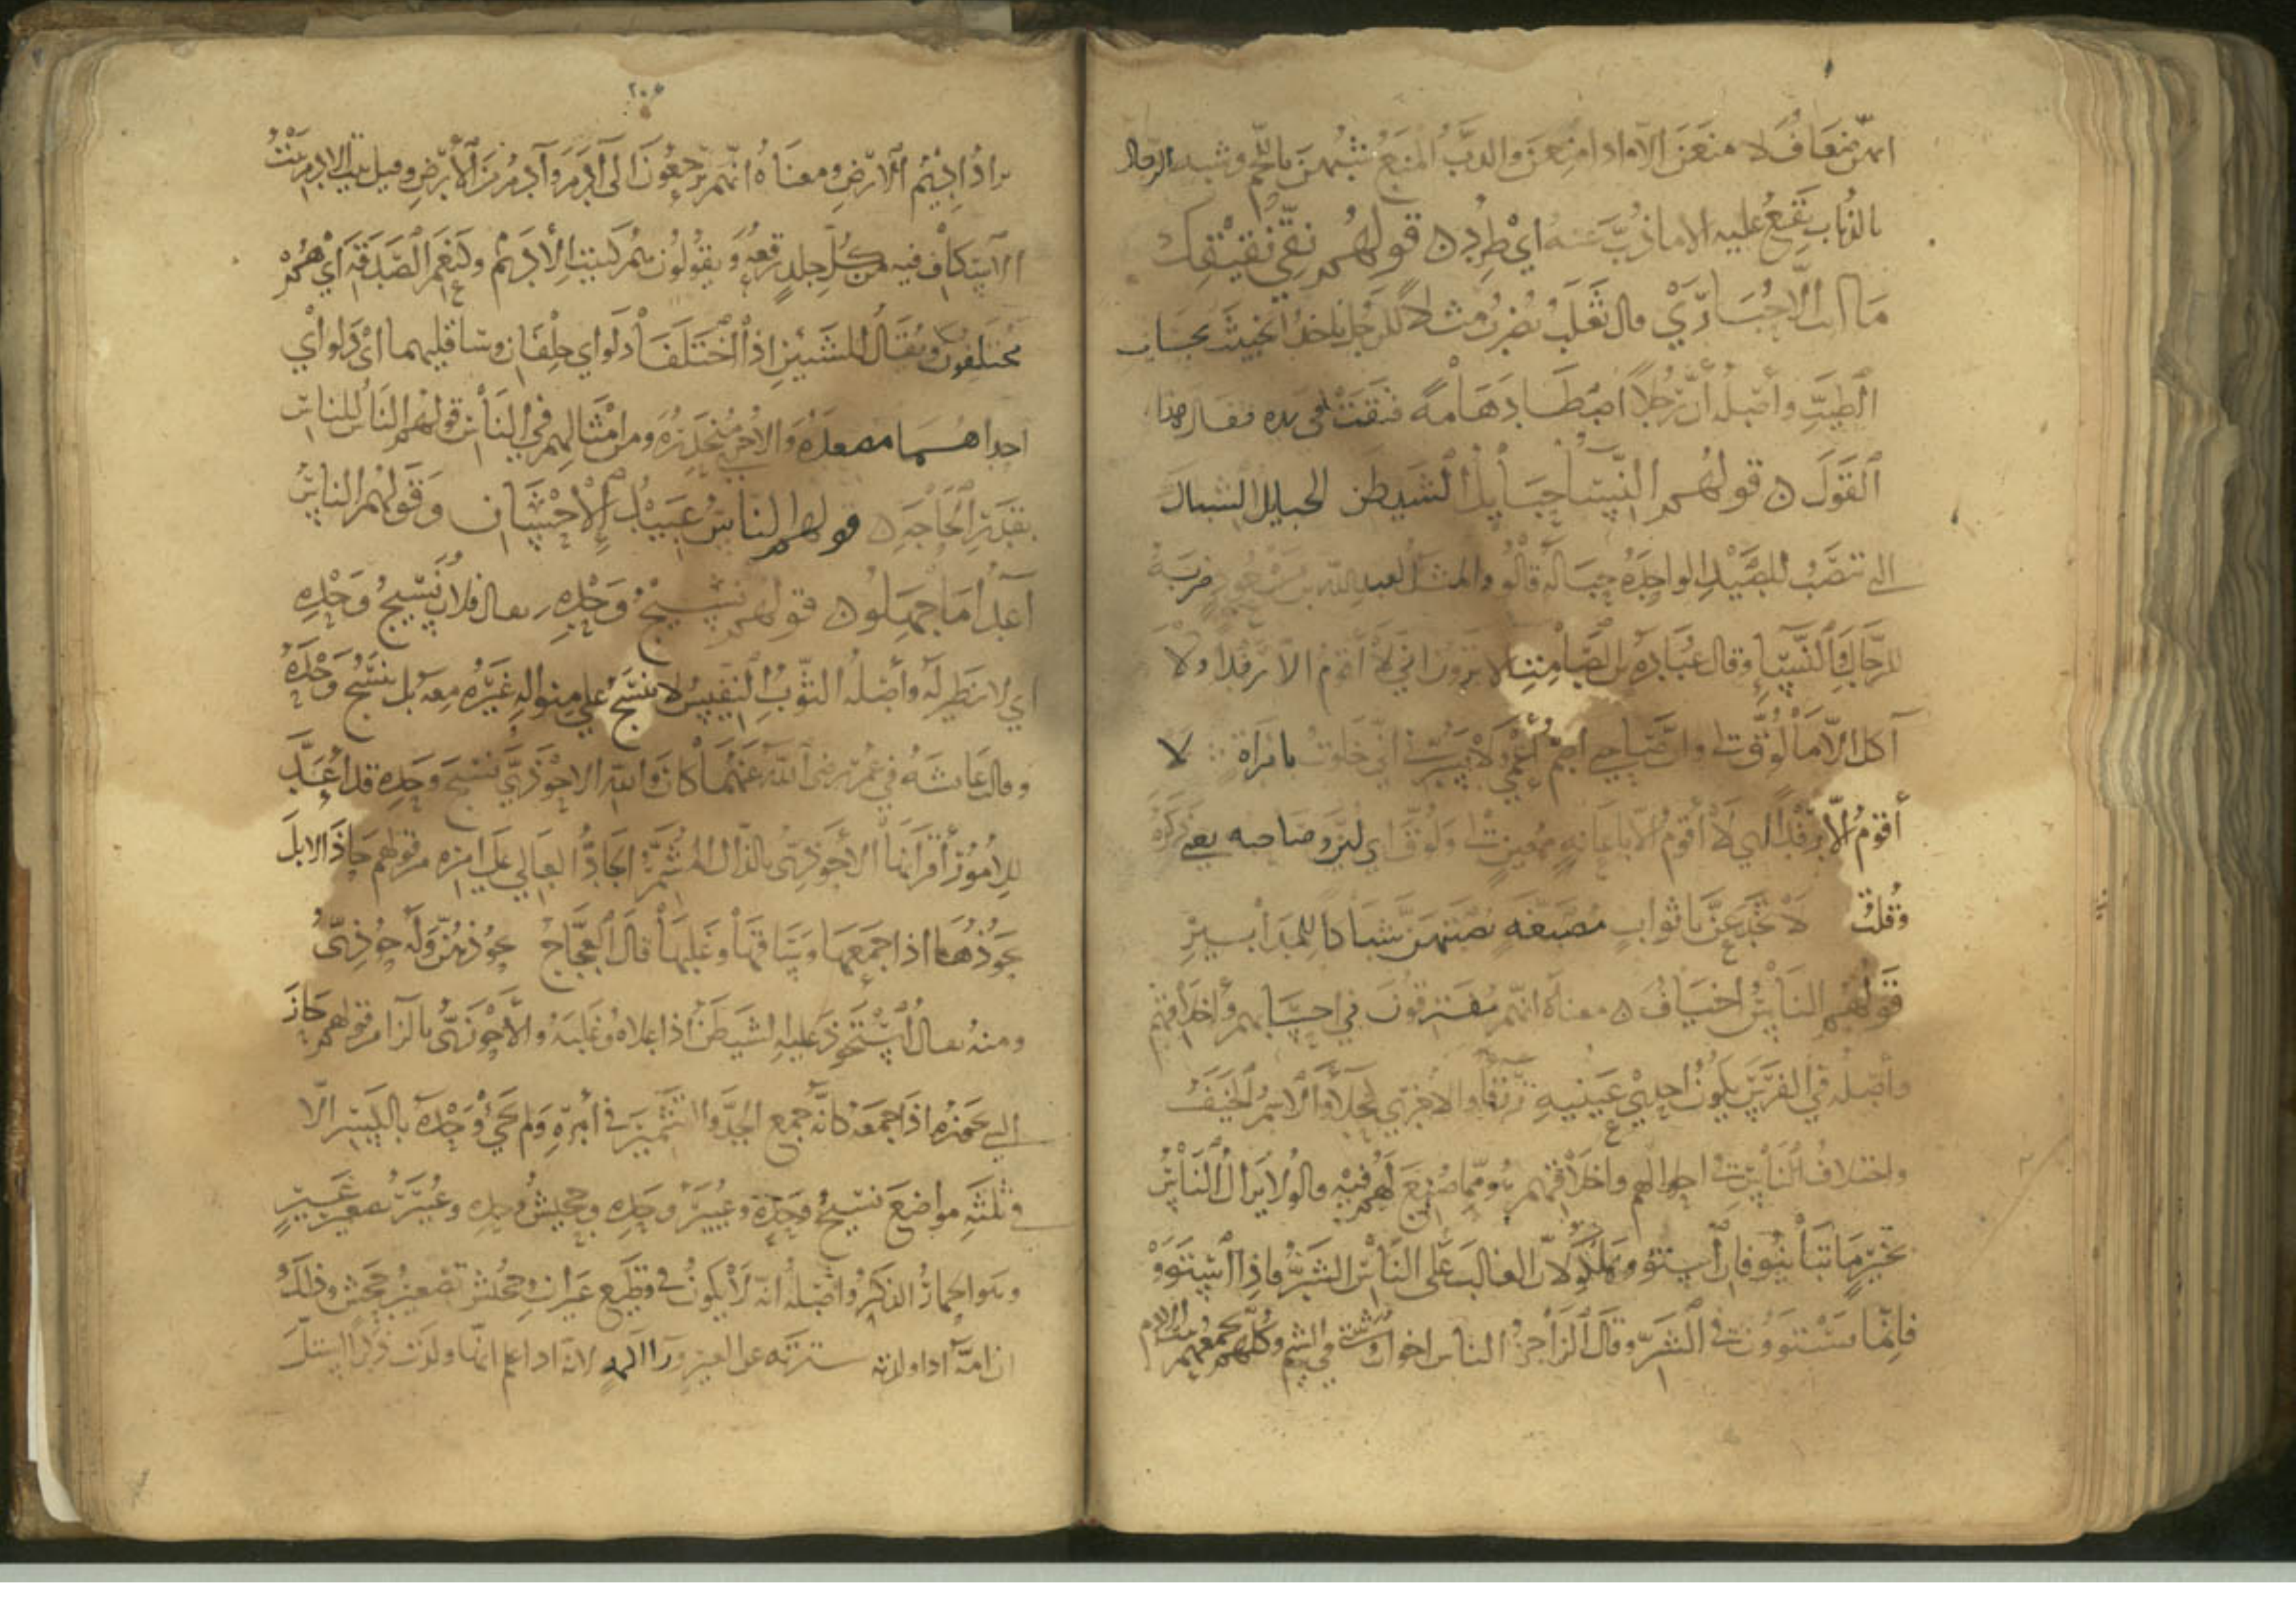 انهن ضعاف لا منعة عندهن الا اذا منعن والذب المنع شبههن باللحم وشبه الرجال
بالذباب تقع عليه الا ما ذب عنه اي طرد ن قولهم نقي نقيقك
ما انت الا حبارى قال ثعلب يضرب مثلا للرجل ياخذ الخبيث بحساب
الطيب وأصله أن رجلا اصطاد هامة فنقت في يده فقال هذا
القول ن قولهم النساء حبايل الشيطن الحبايل الشباك
التي تنصب للصيد الواحدة حبالة قالوا والمثل لعبد الله بن مسعود ضربه
للرجال والنساء وقال عبادة بن الصامت الا ترون اني لا أقوم الا رفدا ولا
آكل الا ما لوق لي وان صاحبي اصم اعمى ولا يسرني اني خلوت بامراة لا
أقوم الا رفدا اي لا أقوم الا باعانة معين لي ولوق اي لين وصاحبه يعني ذكره
وقلت لا تخدعن باثواب مصبغة نصبتهن شباكا للمدابير
قولهم الناس اخياف ن معناه انهم مفترقون في احسابهم وأخلاقهم
وأصله في الفرس يكون احدى عينيه زرقاء والاخرى كحلاء والاسم الخيف
واختلاف الناس في احوالهم واخلاقهم هو مما صنع لهم فيه قالوا لا يزال الناس
بخير ما تباينوا فان استووا هلكوا لان الغالب على الناس الشر فاذا استووا
فانما يستوون في الشر وقال الراجز الناس اخوان وشتى في الشيم وكلهم يجمعهم بيت الادم
٢٠٤
اذا اديم الارض ومعناه انهم يرجعون الى آدم وآدم من الأرض وقيل بيت الادم بيت
الاسكاف فيه من كل جلد رقعة ويقولون هم كبيت الأدم وكنعم الصدقة اي هم
مختلفون ويقال للشيئين اذا اختلفا دلو اي خلفان وساقيهما اي دلو اي
احداهما مصعدة والاخرى منحدرة ومن امثالهم في الناس قولهم الناس للناس
بقدر الحاجة ن قولهم الناس عبيد الاحسان وقولهم الناس
أعداء ما جهلوا ن قولهم نسيج وحده يقال فلان نسيج وحده
اي لا نظير له وأصله الثوب النفيس لا ينسج على منواله غيره معه بل ينسج وحده
وقالت عائشة في عمر رضي الله عنهما كان والله الاحوذي نسيج وحده قد أعد
للأمور أقرانها الأحوذي بالذال المشمر الجاد العالي على امره من قولهم حاذ الابل
يحوذها اذا جمعها وساقها وغلبها قال العجاج يحوذهن وله حوذي
ومنه يقال استحوذ عليه الشيطن اذا علاه وغلبه والأحوزي بالزا من قولهم حاز
الشي يحوزه اذا جمعه كانه جمع الجد والتشمير في أمره ولم يجئ وحده بالكسر الا
في ثلثة مواضع نسيج وحده وعيير وحده وجحيش وحده وعيير تصغير عير
وهو الحمار الذكر وأصله انه لا يكون في قطيع عيران وجحيش تصغير جحش وذلك
ان امه اذا ولدته سترته عن العير ورا اكمه لانه اذا علم انها ولدت ذكرا استل